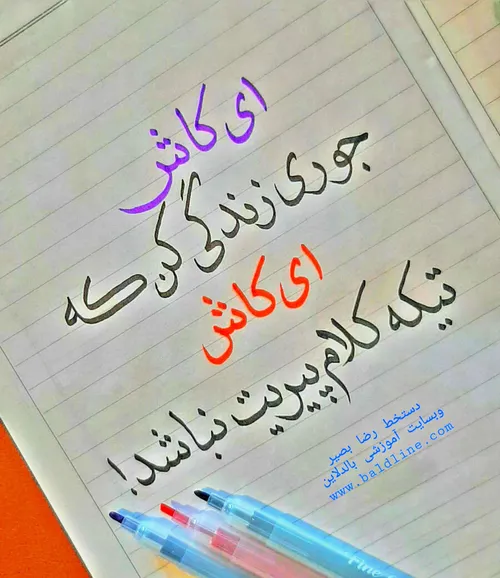 ای کاش
جوری زندگی کن که
ای کاش
تیکه کلام پیریت نباشد!
دستخط رضا بصیر
وبسایت آموزشی بالدلاین
www.baldline.com
Fine